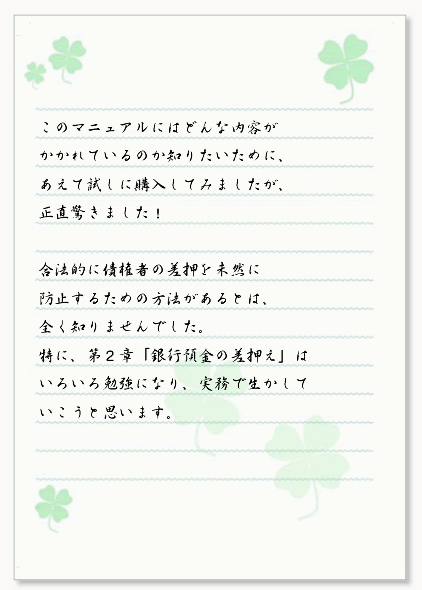 このマニュアルにはどんな内容が
かかれているのか知りたいために、
あえて試しに購入してみましたが、
正直驚きました！
合法的に債権者の差押を未然に
防止するための方法があるとは、
全く知りませんでした。
特に、第２章「銀行預金の差押え」は
いろいろ勉強になり、実務で生かして
いこうと思います。